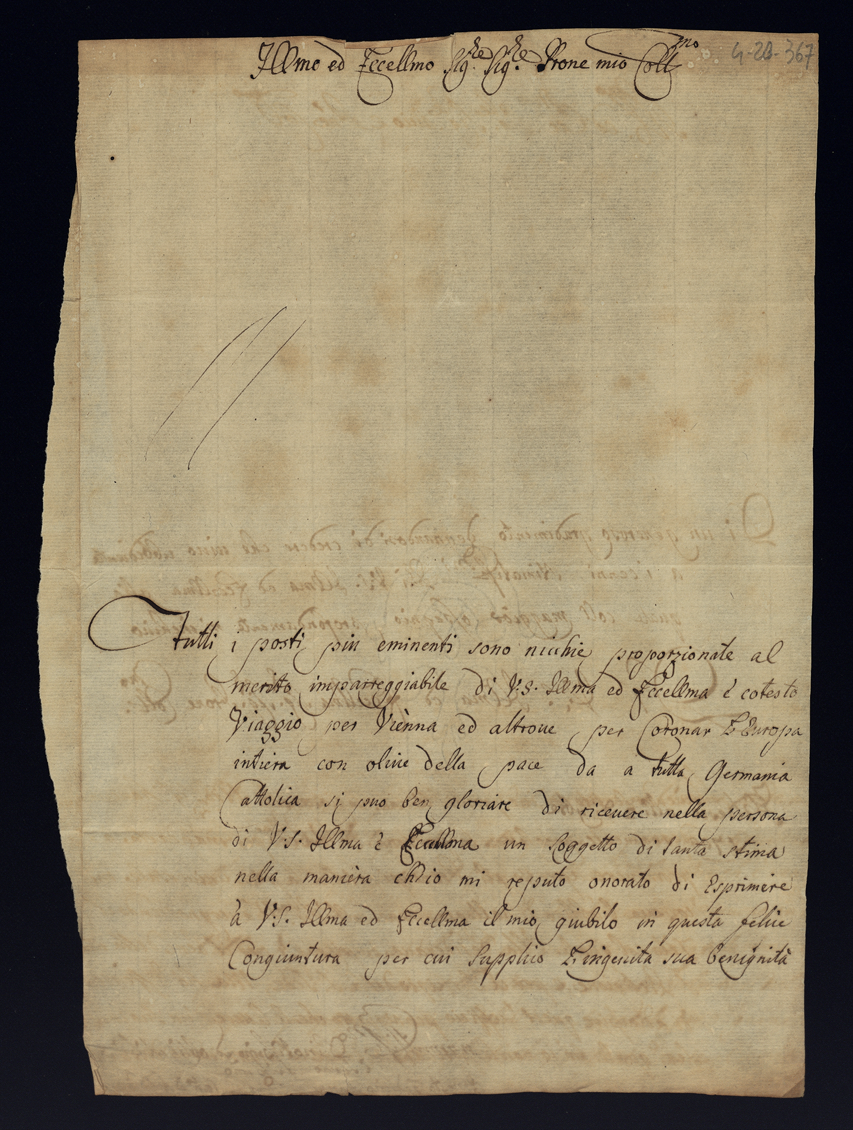 Illmo ed Eccellmo Sig.re Sig.re Prone mio Coll.mo
4-28-367
Tutti i posti piu eminenti sono nicchie proporzionate al
meritto impareggiabile di V.S. Illma ed Eccellma è cotesto
Viaggio per Vienna ed altroue per Coronar L'Europa
intiera con oliue della pace da a tutta Germania
Cattolica si puo ben gloriare di riceuere nella persona
di V.S. Illma è Eccellma un Soggetto di santa stima
nella maniera ch'io mi reputo onorato di Esprimere
à V.S. Illma ed Eccellma il mio giubilo in questa felice
Congiuntura per cui Supplico L'ingenita sua benignità